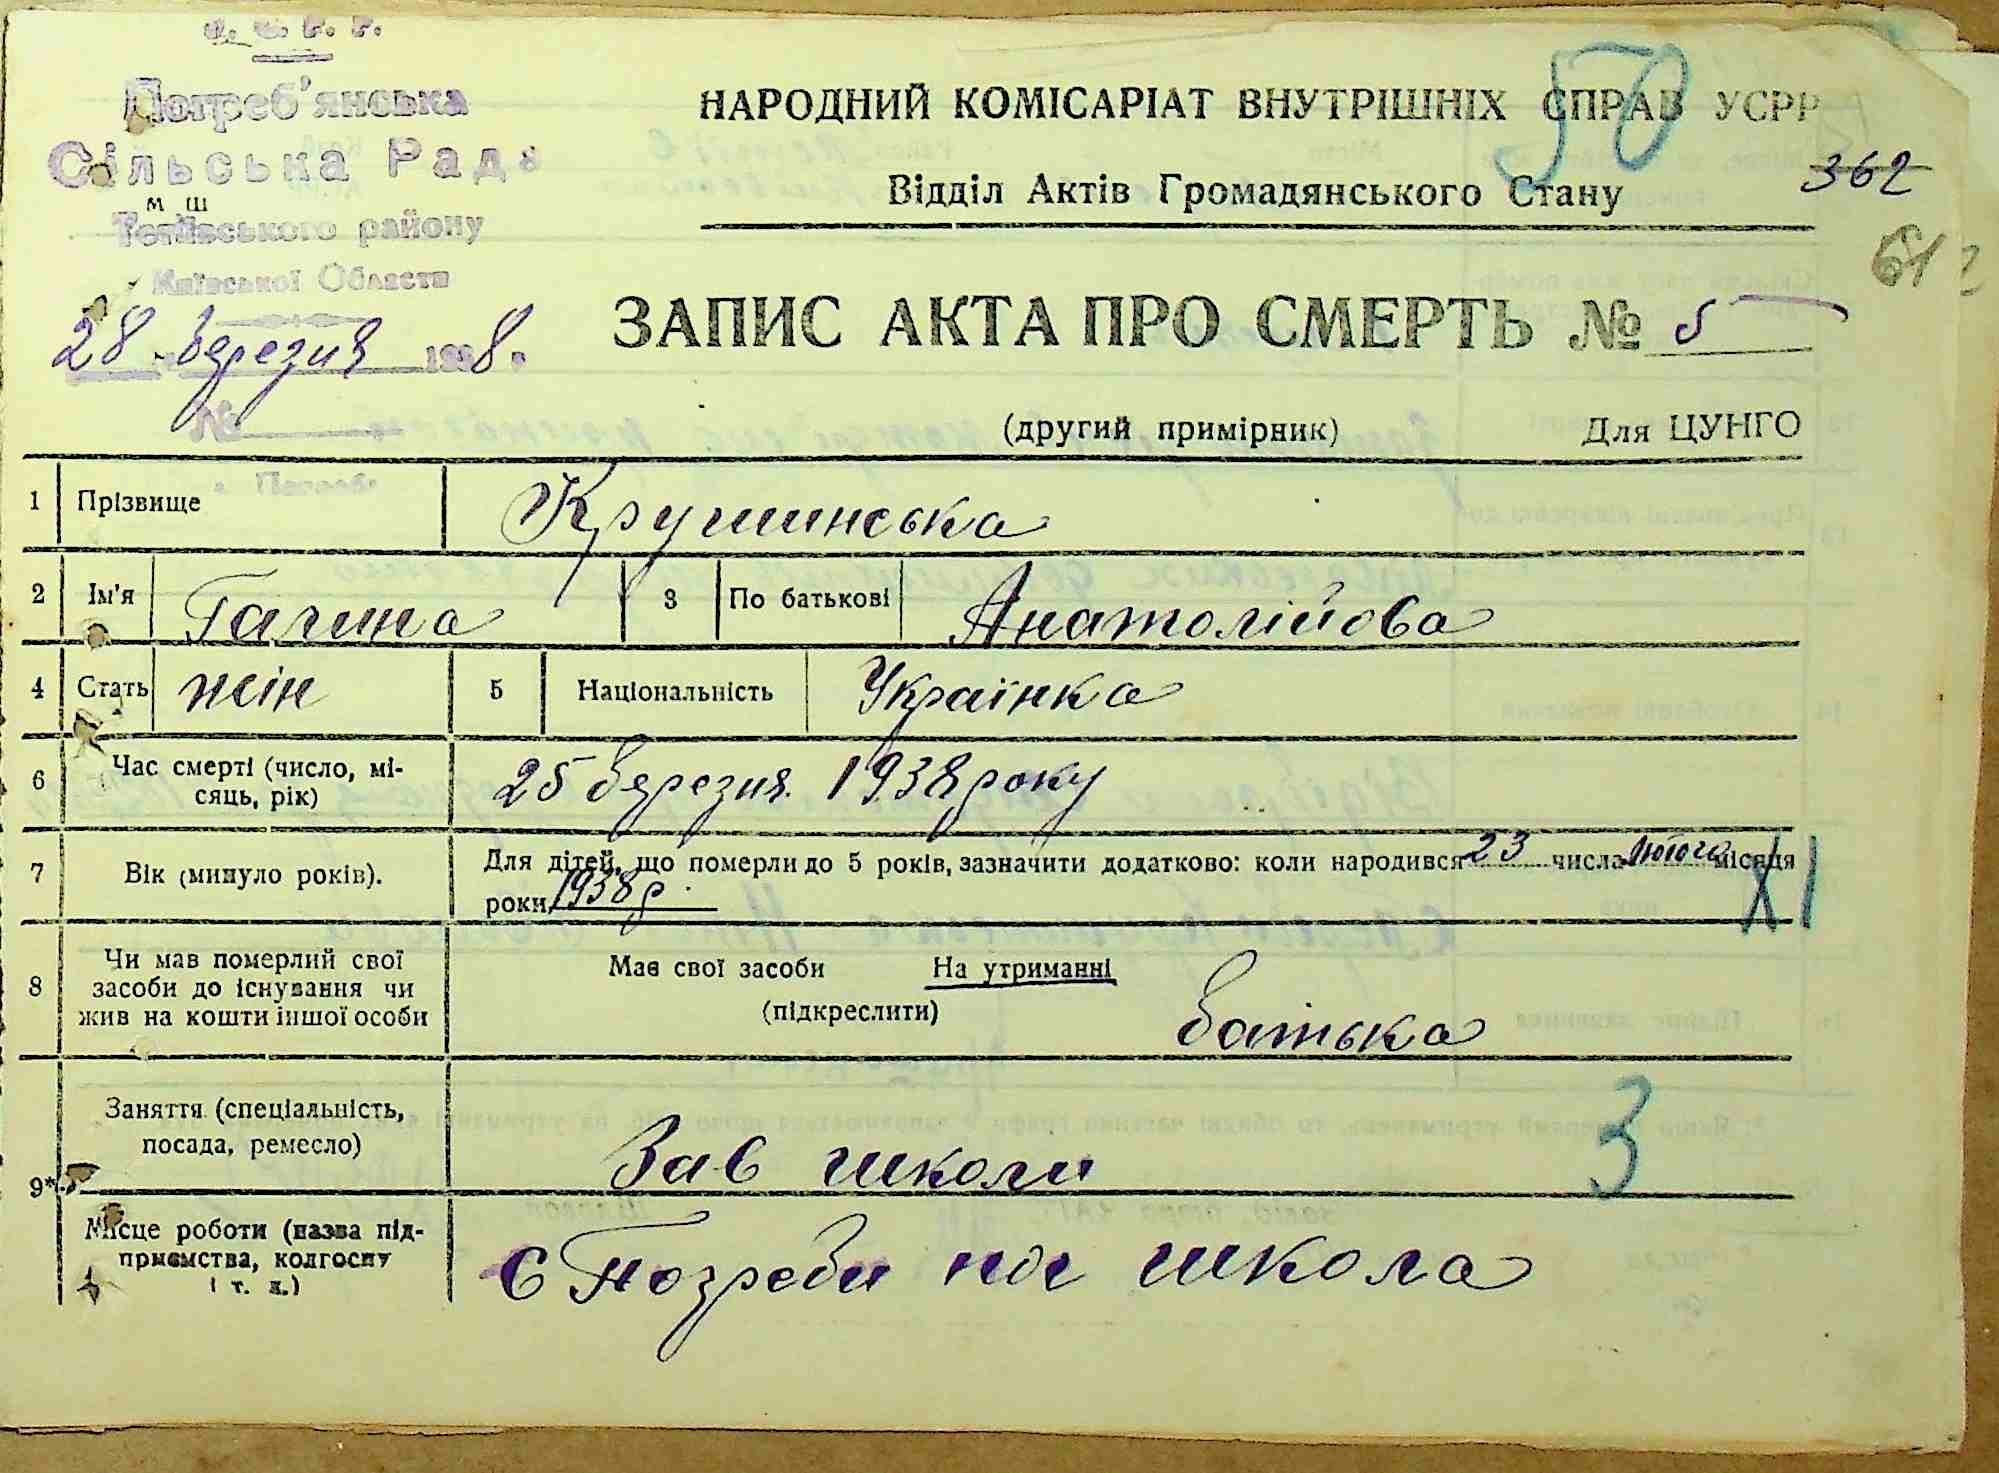 У. С. Р. Р.
Погреб'янська
Сільська Рада
м ш
Тетіївського району
Київської Области
28 березня 1938.
№
50
НАРОДНИЙ КОМІСАРІАТ ВНУТРІШНІХ СПРАВ УСРР
Відділ Актів Громадянського Стану
362
ЗАПИС АКТА ПРО СМЕРТЬ № 5
(другий примірник) Для ЦУНГО
1 Прізвище Крушинська
2 Ім'я Галина 3 По батькові Анатолійова
4 Стать жін 5 Національність Українка
6 Час смерті (число, мі-
сяць, рік) 25 березня. 1938 року
7 Вік (минуло років). Для дітей, що померли до 5 років, зазначити додатково: коли народився 23 числа лютого місяця
роки 1938 р.
XI
8 Чи мав померлий свої
засоби до існування чи
жив на кошти іншої особи
Має свої засоби На утриманні
(підкреслити) батька
9* Заняття (спеціальність,
посада, ремесло) Зав школи
3
Місце роботи (назва під-
приємства, колгоспу
і т. д.) с Погреби нсш школа